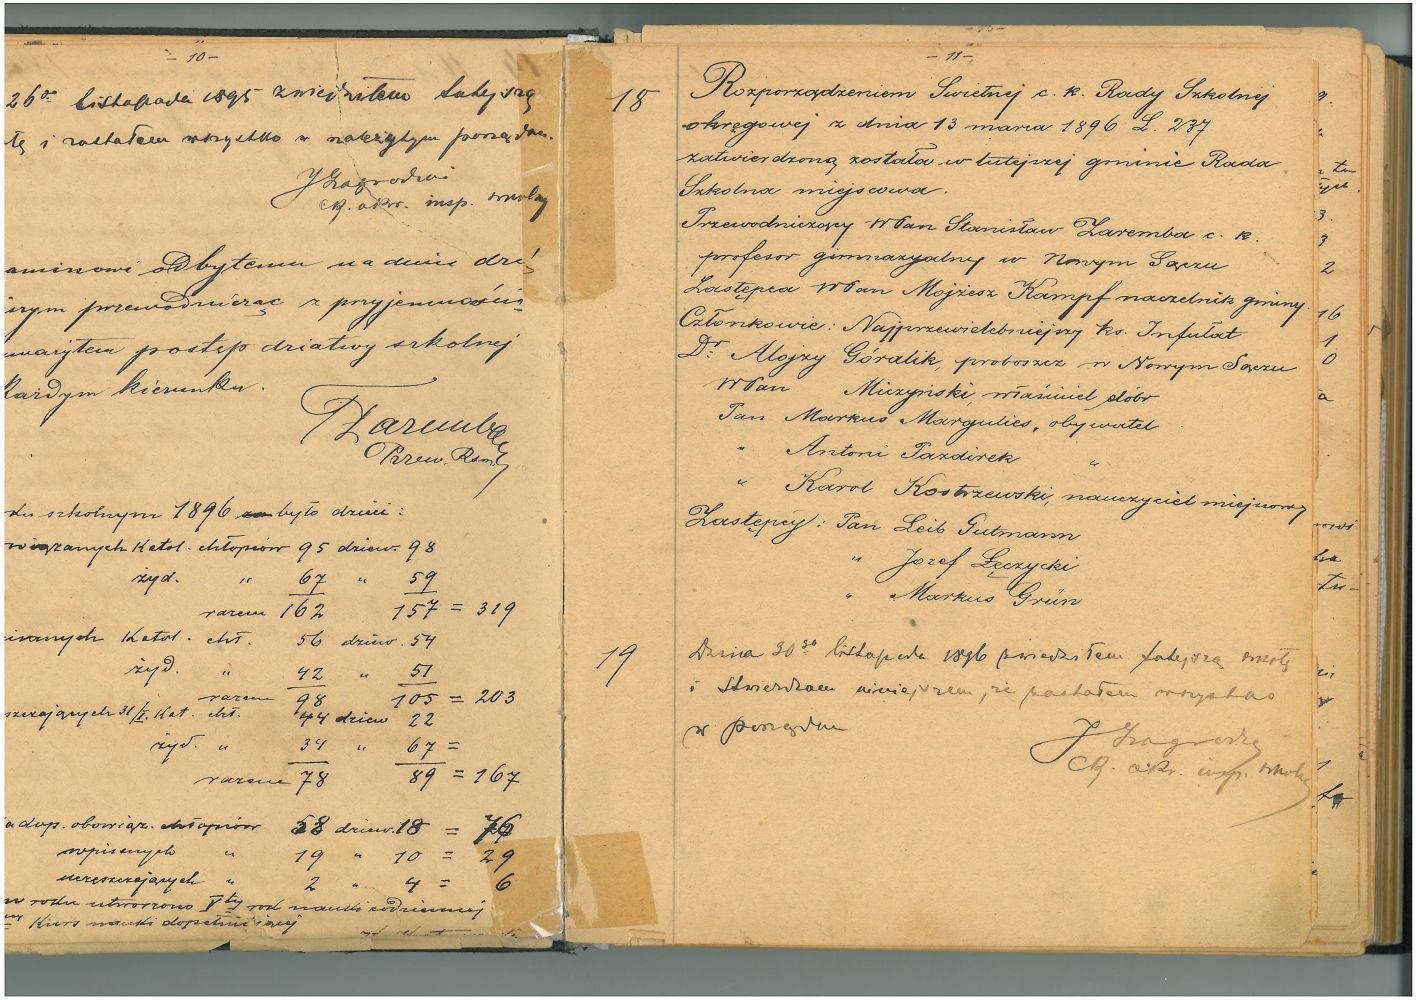 - 10 -
26go listopada 1895 zwiedziłem tutejszą
i zastałem wszystko w należytym porządku.
JZagrodzki
ck. okr. insp. szkolny
aminowi odbytemu na dniu dzi-
przewodnicząc z przyjemnością
postęp dziatwy szkolnej
każdym kierunku.
Zaremba
Przew. Rsm.
szkolnym 1896 było dzieci:
Katol. chłopców 95 dziew. 98
żyd. " 67 " 59
razem 162 157 = 319
Katol. chł. 56 dziew. 54
żyd. " 42 " 51
razem 98 105 = 203
31/I. Kat. chł. 44 dziew 22
żyd. " 34 " 67 =
razem 78 89 = 167
dop. obowiąz. chłopców 58 dziew. 18 = 76
wpisanych " 19 " 10 = 29
uczęszczających " 2 " 4 = 6
roku utworzono Vty rok nauki codziennej
Kurs nauki dopełniającej
- 11 -
18
Rozporządzeniem Świetnej c. k. Rady Szkolnej
okręgowej z dnia 13 marca 1896 L. 237
zatwierdzoną została w tutejszej gminie Rada
Szkolna miejscowa.
Przewodniczący WPan Stanisław Zaremba c. k.
profesor gimnazyalny w Nowym Sączu
Zastępca WPan Mojżesz Kampf naczelnik gminy.
Członkowie: Najprzewielebniejszy ks. Infułat
Dr. Alojzy Góralik, proboszcz w Nowym Sączu
WPan Miczyński, właściciel dóbr
Pan Markus Margulies, obywatel
" Antoni Pazdirek "
" Karol Kostrzewski, nauczyciel miejscowy
Zastępcy: Pan Leib Gutmann
" Jozef Łęczycki
" Markus Grün
19
Dnia 30go listopada 1896 zwiedziłem tutejszą szkołę
i stwierdzam niniejszem, że zastałem wszystko
w porządku
JZagrodzki
ck. okr. insp. szkolny